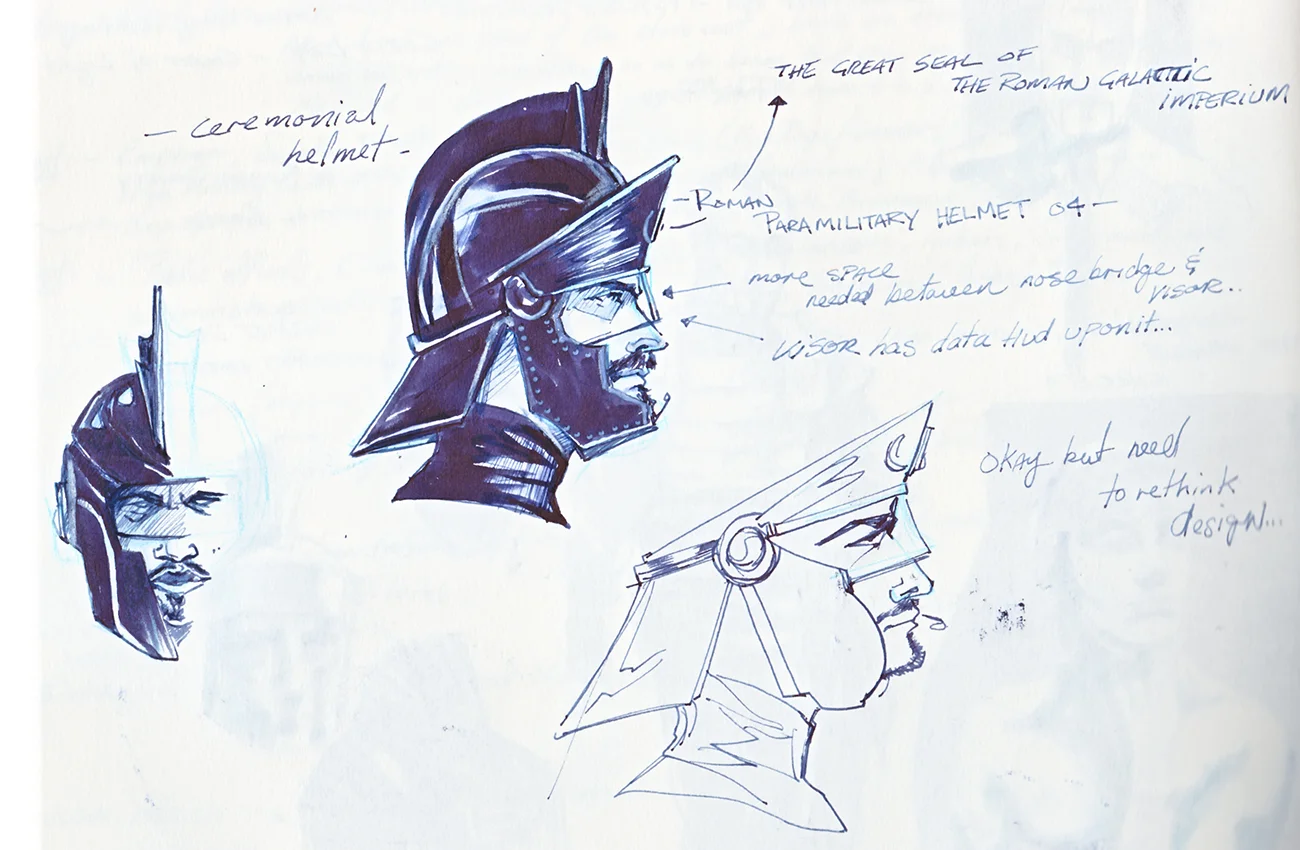 - ceremonial
helmet -
THE GREAT SEAL OF
THE ROMAN GALACTIC
IMPERIUM
- ROMAN
PARAMILITARY HELMET 04 -
more SPACE
needed between nose bridge &
visor..
VISOR has data Hud upon it...
OKAY but need
to rethink
design...